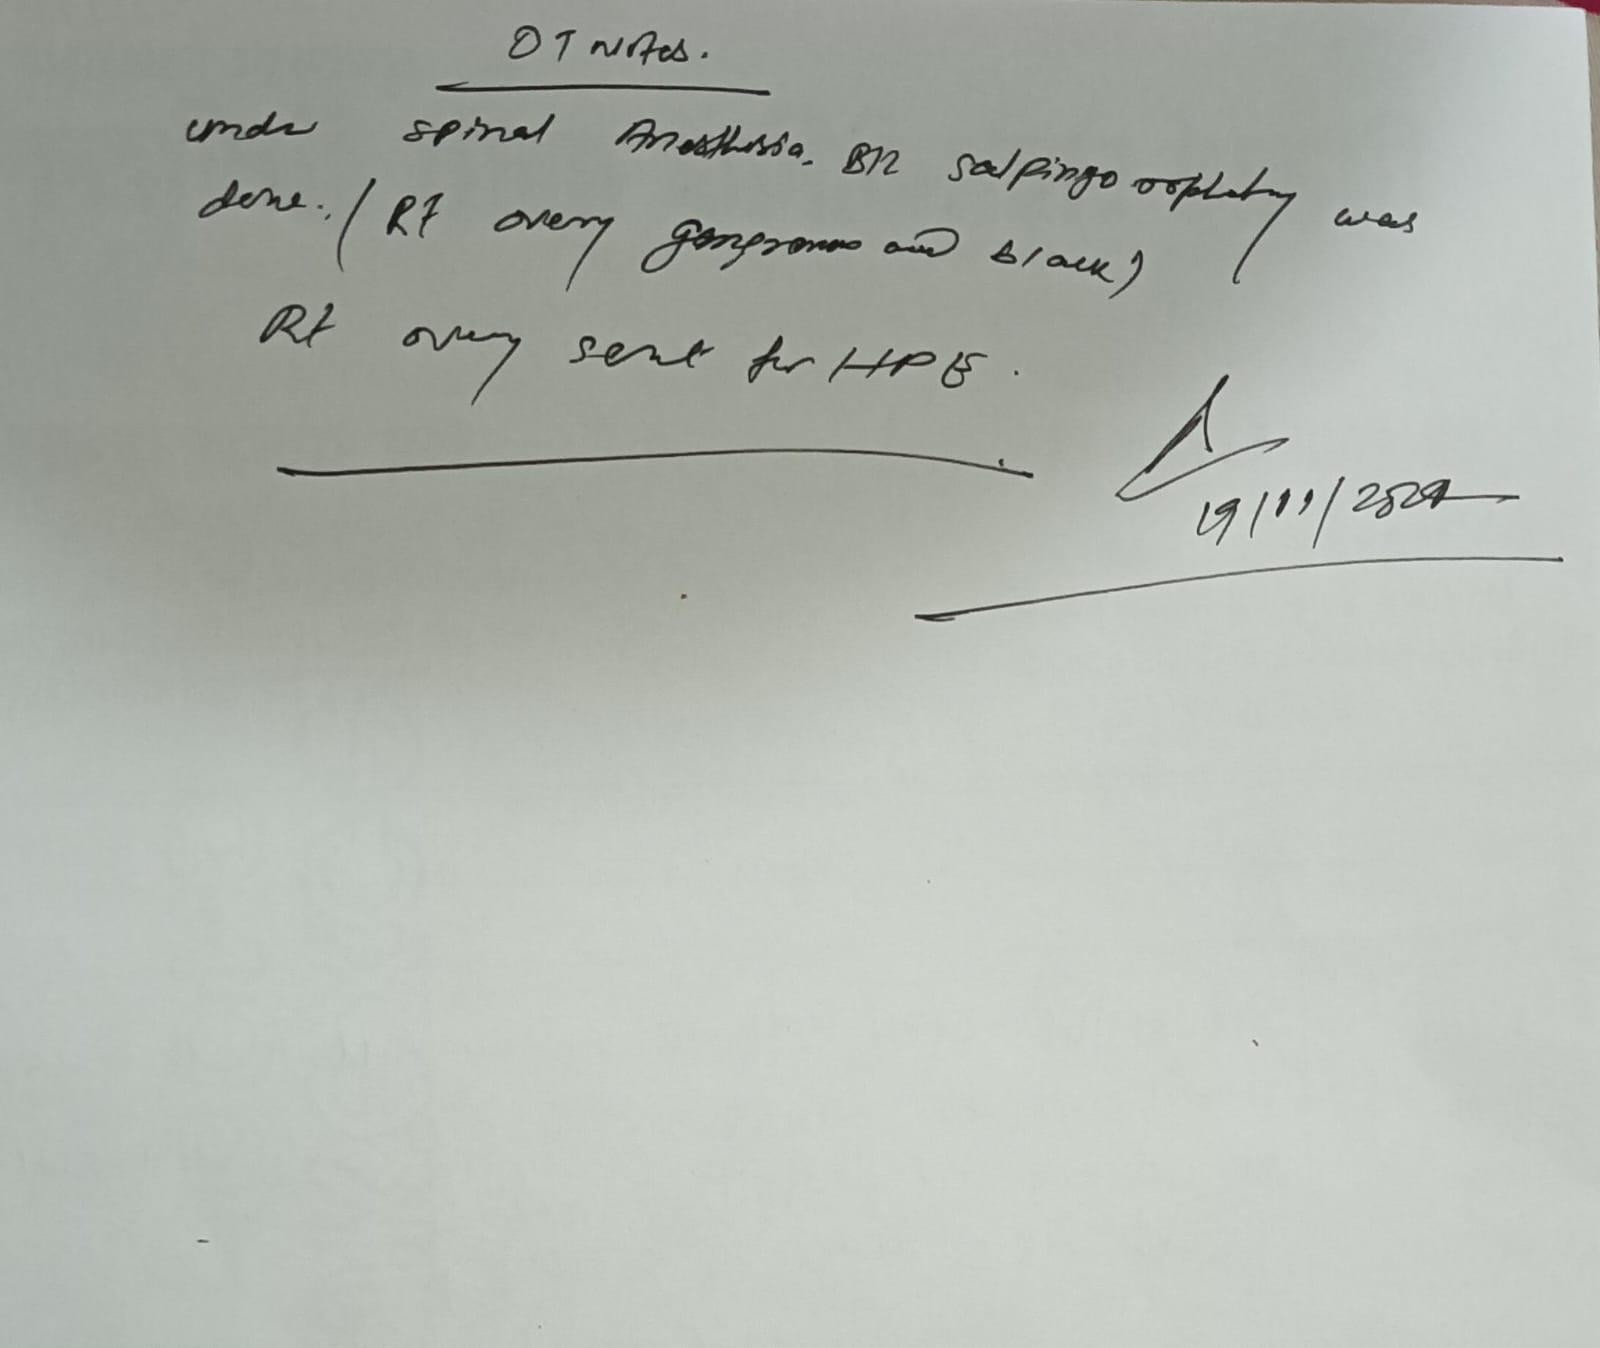 OT Notes.
under spinal Anesthesia. B/L salpingo oophetomy was
done. / Rt ovary gangrenous and black)
Rt ovary sent for HPE.
19/11/2024